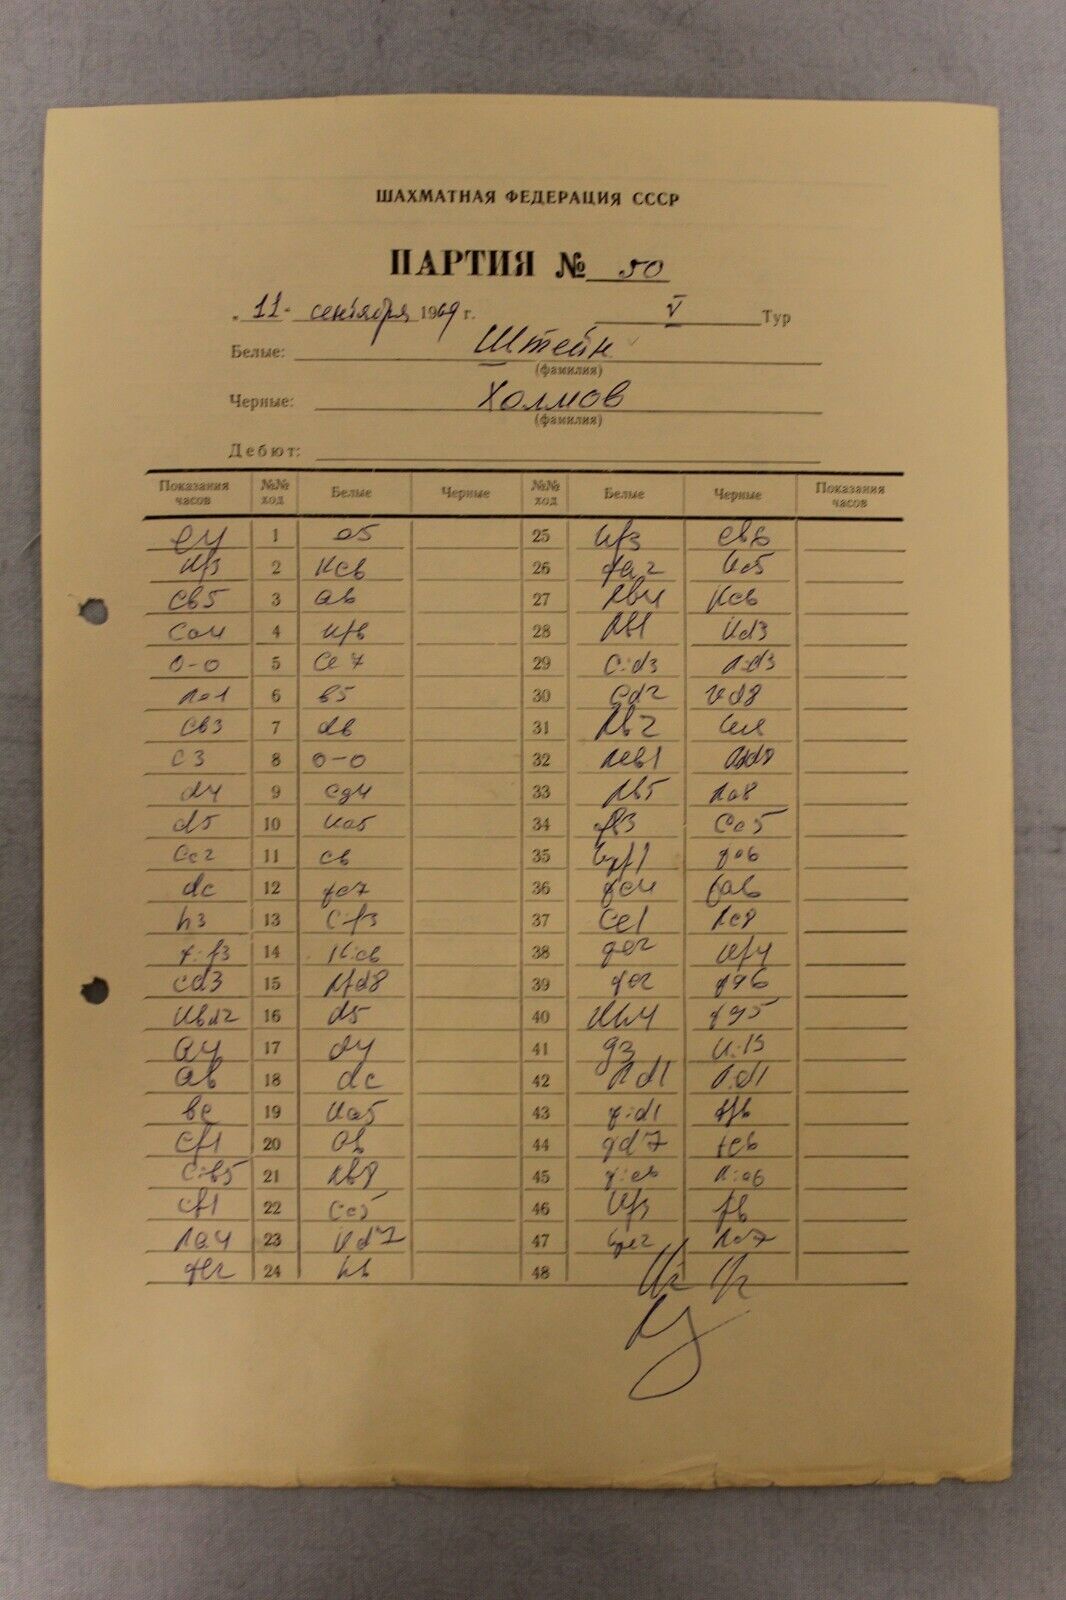 ШАХМАТНАЯ ФЕДЕРАЦИЯ СССР
ПАРТИЯ № 50
„11- сентября 1969 г. V Тур
Белые: Штейн
(фамилия)
Черные: Холмов
(фамилия)
Дебют:
Показания часов №№ ход Белые Черные №№ ход Белые Черные Показания часов
e4 1 e5 25 Kf3 Cb6
Kf3 2 Kc6 26 Фa2 Kc5
Cb5 3 a6 27 Лb4 Ke6
Ca4 4 Kf6 28 Лb1 Кd3
0-0 5 Ce7 29 C:d3 Л:d3
Лe1 6 b5 30 Cd2 Kd8
Cb3 7 d6 31 Лb2
c3 8 0-0 32 Лeb1
d4 9 Cg4 33 Лb5 Лa8
d5 10 Ka5 34 Cc5
Cc2 11 c6 35 Kpf1
dc 12 Фc7 36 Фc4 Фa6
h3 13 C:f3 37 Ce1 Лc8
Ф:f3 14 K:c6 38 Фe2 Kf4
Cd3 15 Лfd8 39 Фc2 Фg6
Kbd2 16 d5 40 Kh4 Фg5
a4 17 d4 41 g3 K:h3
ab 18 dc 42 Лd1 Л:d1
bc 19 Ka5 43 Ф:d1 Фf6
Cf1 20 ab 44 Фd7 Фe6
C:b5 21 Лb8 45 Ф:e6 Л:e6
Cf1 22 Cc5 46 Kf3 f6
Лa4 23 Kd7 47 Kpe2 Лc7
Фe2 24 h6 48